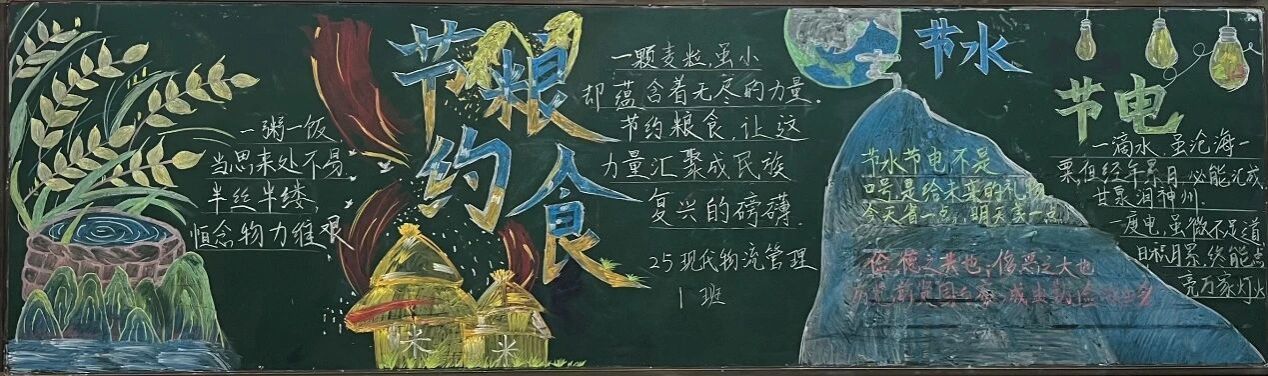 一粥一饭
当思来处不易
半丝半缕
恒念物力维艰
节约
粮食
米
米
一颗麦粒,虽小
却蕴含着无尽的力量.
节约粮食,让这
力量汇聚成民族
复兴的磅礴.
25现代物流管理
1班
节水
节水节电不是
口号是给未来的礼物
今天省一点,明天亮一点
俭,德之共也;侈,恶之大也
节电
一滴水,虽沧海一
粟但经年累月必能汇成
甘泉润神州.
一度电,虽微不足道
日积月累,终能点
亮万家灯火